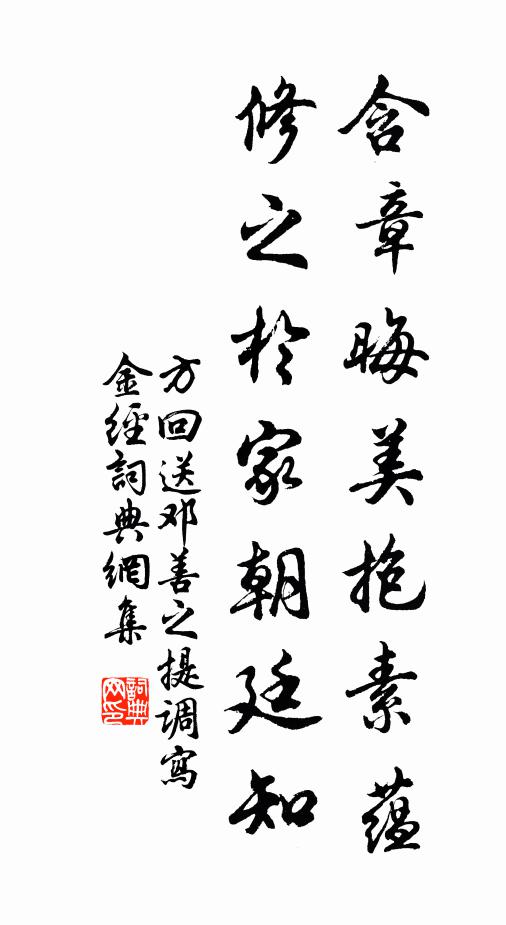 含章晦美抱素蕴
修之於家朝廷知
方回送邓善之提调写
金經詞典網集
詞典网印